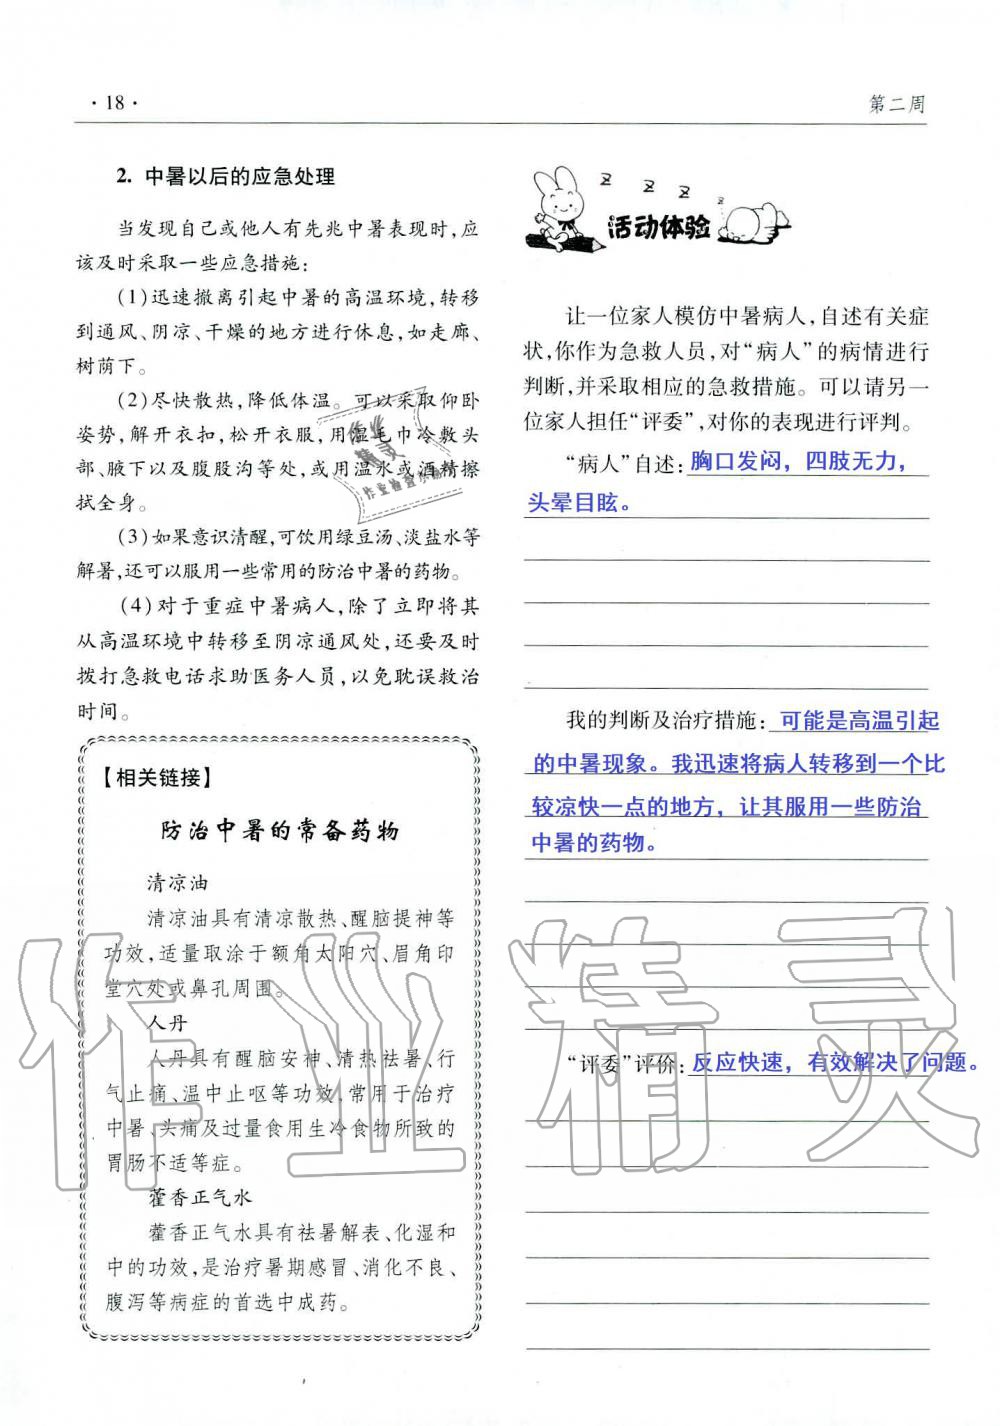 ·18·
第二周
2. 中暑以后的应急处理
当发现自己或他人有先兆中暑表现时,应
该及时采取一些应急措施:
(1)迅速撤离引起中暑的高温环境,转移
到通风、阴凉、干燥的地方进行休息,如走廊、
树荫下。
(2)尽快散热,降低体温。可以采取仰卧
姿势,解开衣扣,松开衣服,用湿毛巾冷敷头
部、腋下以及腹股沟等处,或用温水或酒精擦
拭全身。
(3)如果意识清醒,可饮用绿豆汤、淡盐水等
解暑,还可以服用一些常用的防治中暑的药物。
(4)对于重症中暑病人,除了立即将其
从高温环境中转移至阴凉通风处,还要及时
拨打急救电话求助医务人员,以免耽误救治
时间。
【相关链接】
防治中暑的常备药物
清凉油
清凉油具有清凉散热、醒脑提神等
功效,适量取涂于额角太阳穴、眉角印
堂穴处或鼻孔周围。
人丹
人丹具有醒脑安神、清热祛暑、行
气止痛、温中止呕等功效,常用于治疗
中暑、头痛及过量食用生冷食物所致的
胃肠不适等症。
藿香正气水
藿香正气水具有祛暑解表、化湿和
中的功效,是治疗暑期感冒、消化不良、
腹泻等病症的首选中成药。
z z z z
活动体验
让一位家人模仿中暑病人,自述有关症
状,你作为急救人员,对“病人”的病情进行
判断,并采取相应的急救措施。可以请另一
位家人担任“评委”,对你的表现进行评判。
“病人”自述:胸口发闷，四肢无力，
头晕目眩。
我的判断及治疗措施:可能是高温引起
的中暑现象。我迅速将病人转移到一个比
较凉快一点的地方，让其服用一些防治
中暑的药物。
“评委”评价:反应快速，有效解决了问题。
作业精灵
作业
精灵